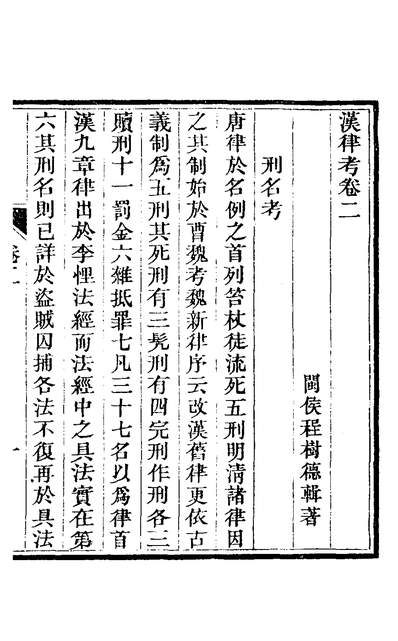 漢律考卷二
閩侯程樹德輯著
刑名考
唐律於名例之首列笞杖徒流死五刑明清諸律因
之其制始於曹魏考魏新律序云改漢舊律更依古
義制爲五刑其死刑有三髡刑有四完刑作刑各三
贖刑十一罰金六雜抵罪七凡三十七名以爲律首
漢九章律出於李悝法經而法經中之具法實在第
六其刑名則已詳於盜賊囚捕各法不復再於具法
卷二
一